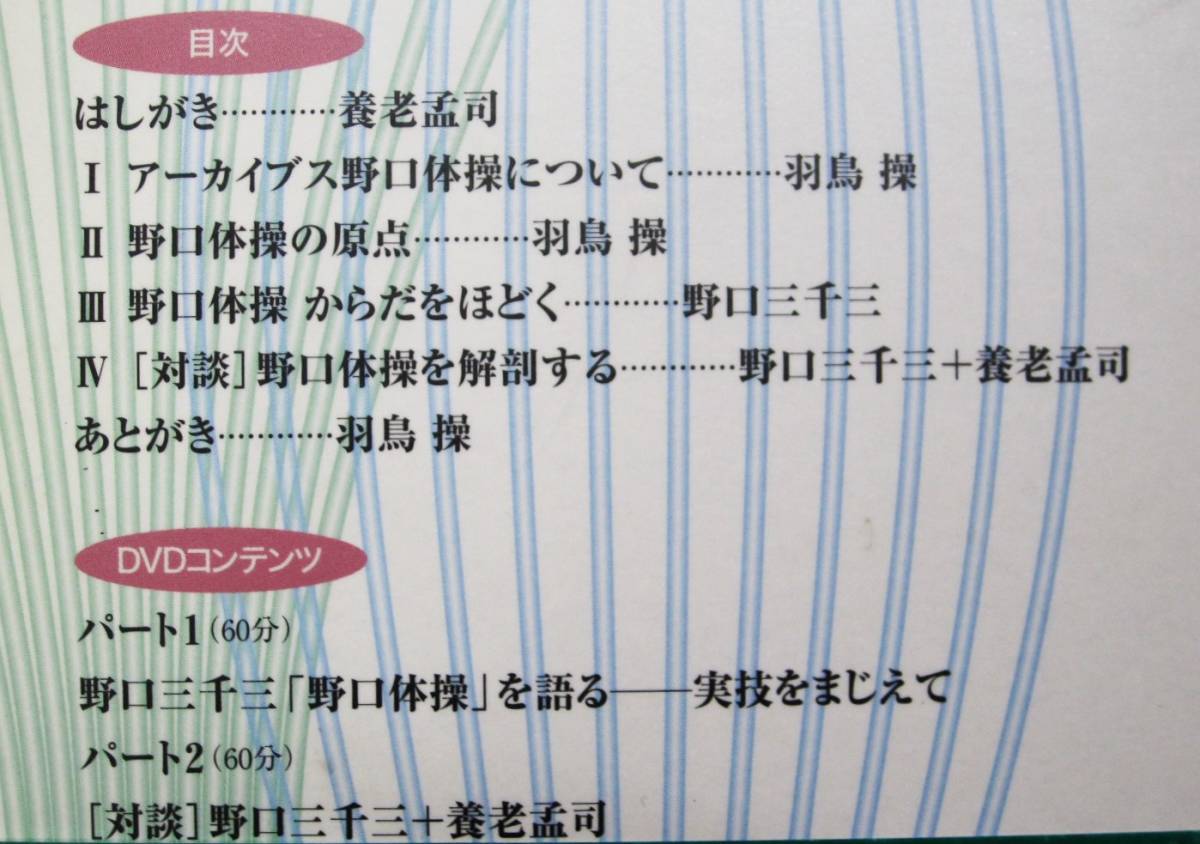 目次
はしがき…………養老孟司
Ⅰ アーカイブス野口体操について…………羽鳥 操
Ⅱ 野口体操の原点…………羽鳥 操
Ⅲ 野口体操 からだをほどく…………野口三千三
Ⅳ [対談]野口体操を解剖する…………野口三千三+養老孟司
あとがき…………羽鳥 操
DVDコンテンツ
パート1(60分)
野口三千三「野口体操」を語る——実技をまじえて
パート2(60分)
[対談]野口三千三+養老孟司